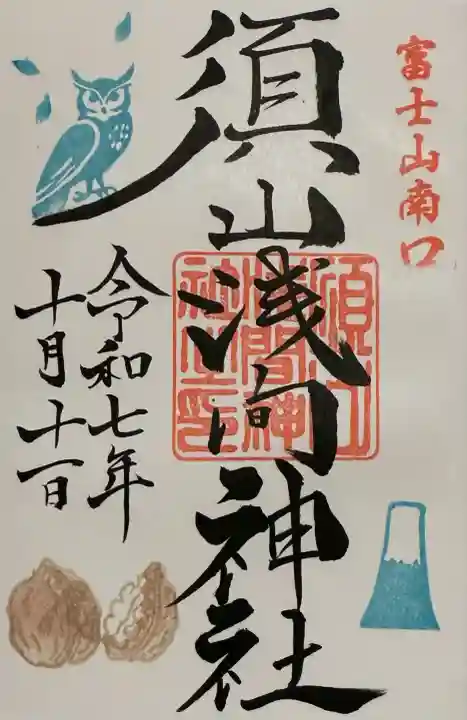 富士山南口
須山浅間神社
須山
浅間神
社之印
令和七年
十月十一日